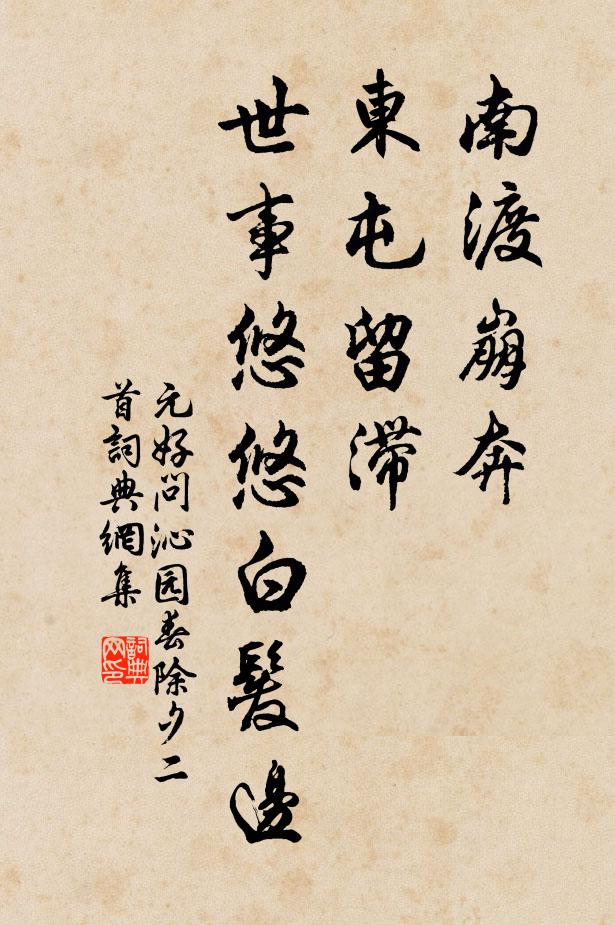 南渡崩奔
東屯留滯
世事悠悠白髮邊
元好问沁园春除夕二
首詞典網集
詞典
网印